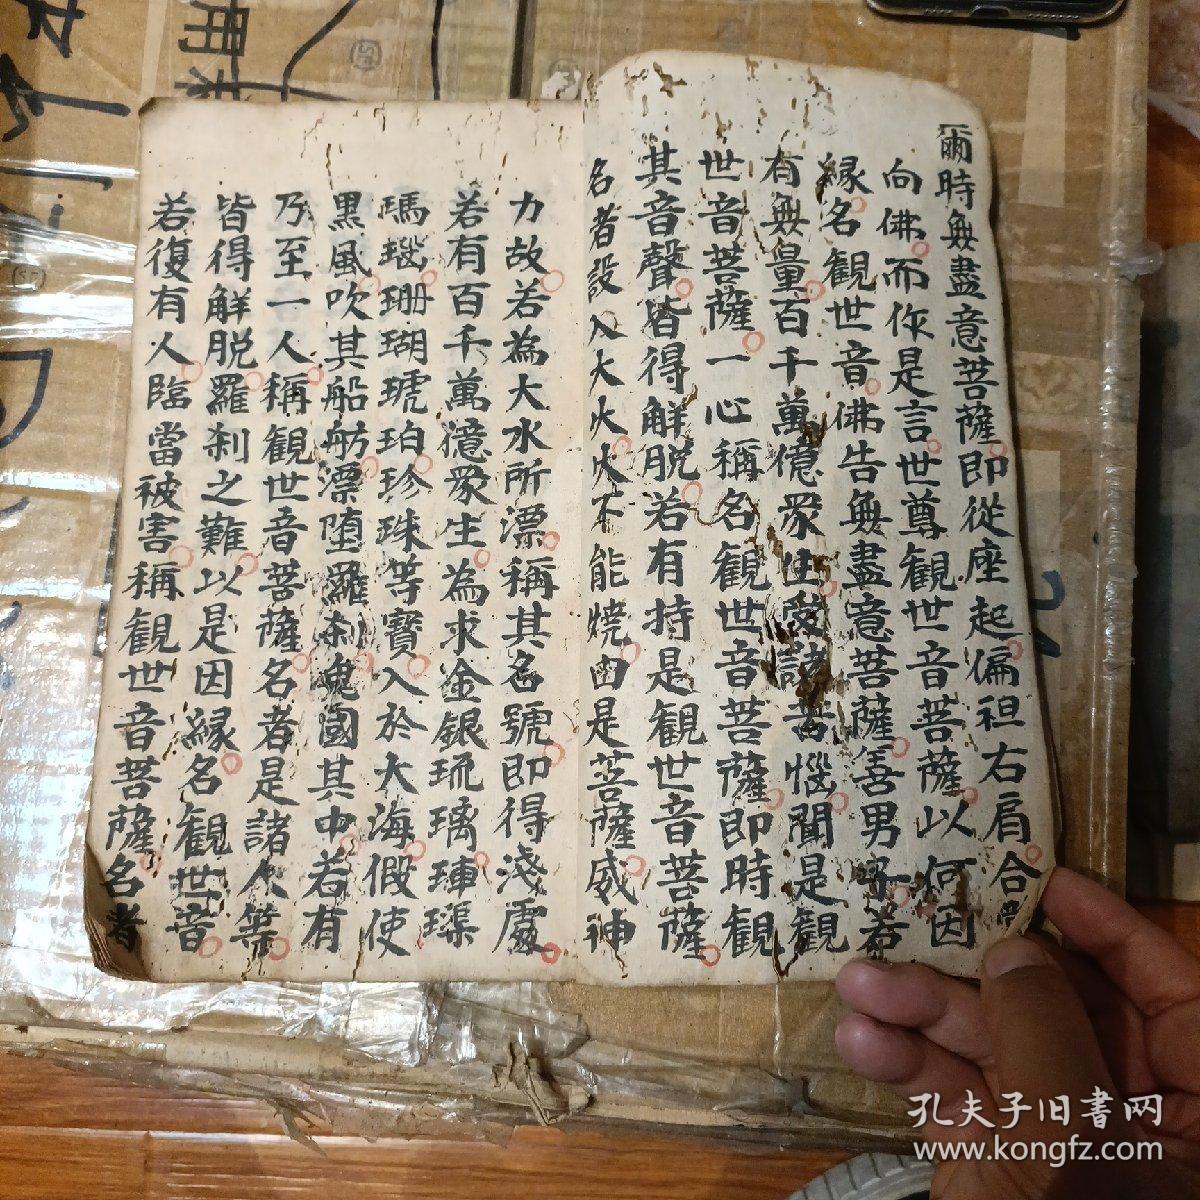 爾時無盡意菩薩即從座起偏袒右肩合掌
向佛而作是言世尊觀世音菩薩以何因
緣名觀世音佛告無盡意菩薩善男子若
有無量百千萬億眾生受諸苦惱聞是觀
世音菩薩一心稱名觀世音菩薩即時觀
其音聲皆得解脫若有持是觀世音菩薩
名者設入大火火不能燒由是菩薩威神
力故若為大水所漂稱其名號即得淺處
若有百千萬億眾生為求金銀琉璃硨磲
瑪瑙珊瑚琥珀珍珠等寶入於大海假使
黑風吹其船舫漂墮羅剎鬼國其中若有
乃至一人稱觀世音菩薩名者是諸人等
皆得解脫羅剎之難以是因緣名觀世音
若復有人臨當被害稱觀世音菩薩名者
孔夫子旧書网
www.kongfz.com